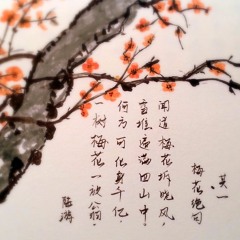 其一
梅花绝句
闻道梅花坼晓风，
雪堆遍满四山中。
何方可化身千亿，
一树梅花一放翁。
陆游